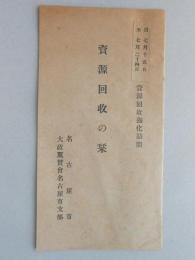 自七月十五日
至七月二十四日
資源回收强化期間
資源回收の栞
名古屋市
大政翼贊會名古屋市支部